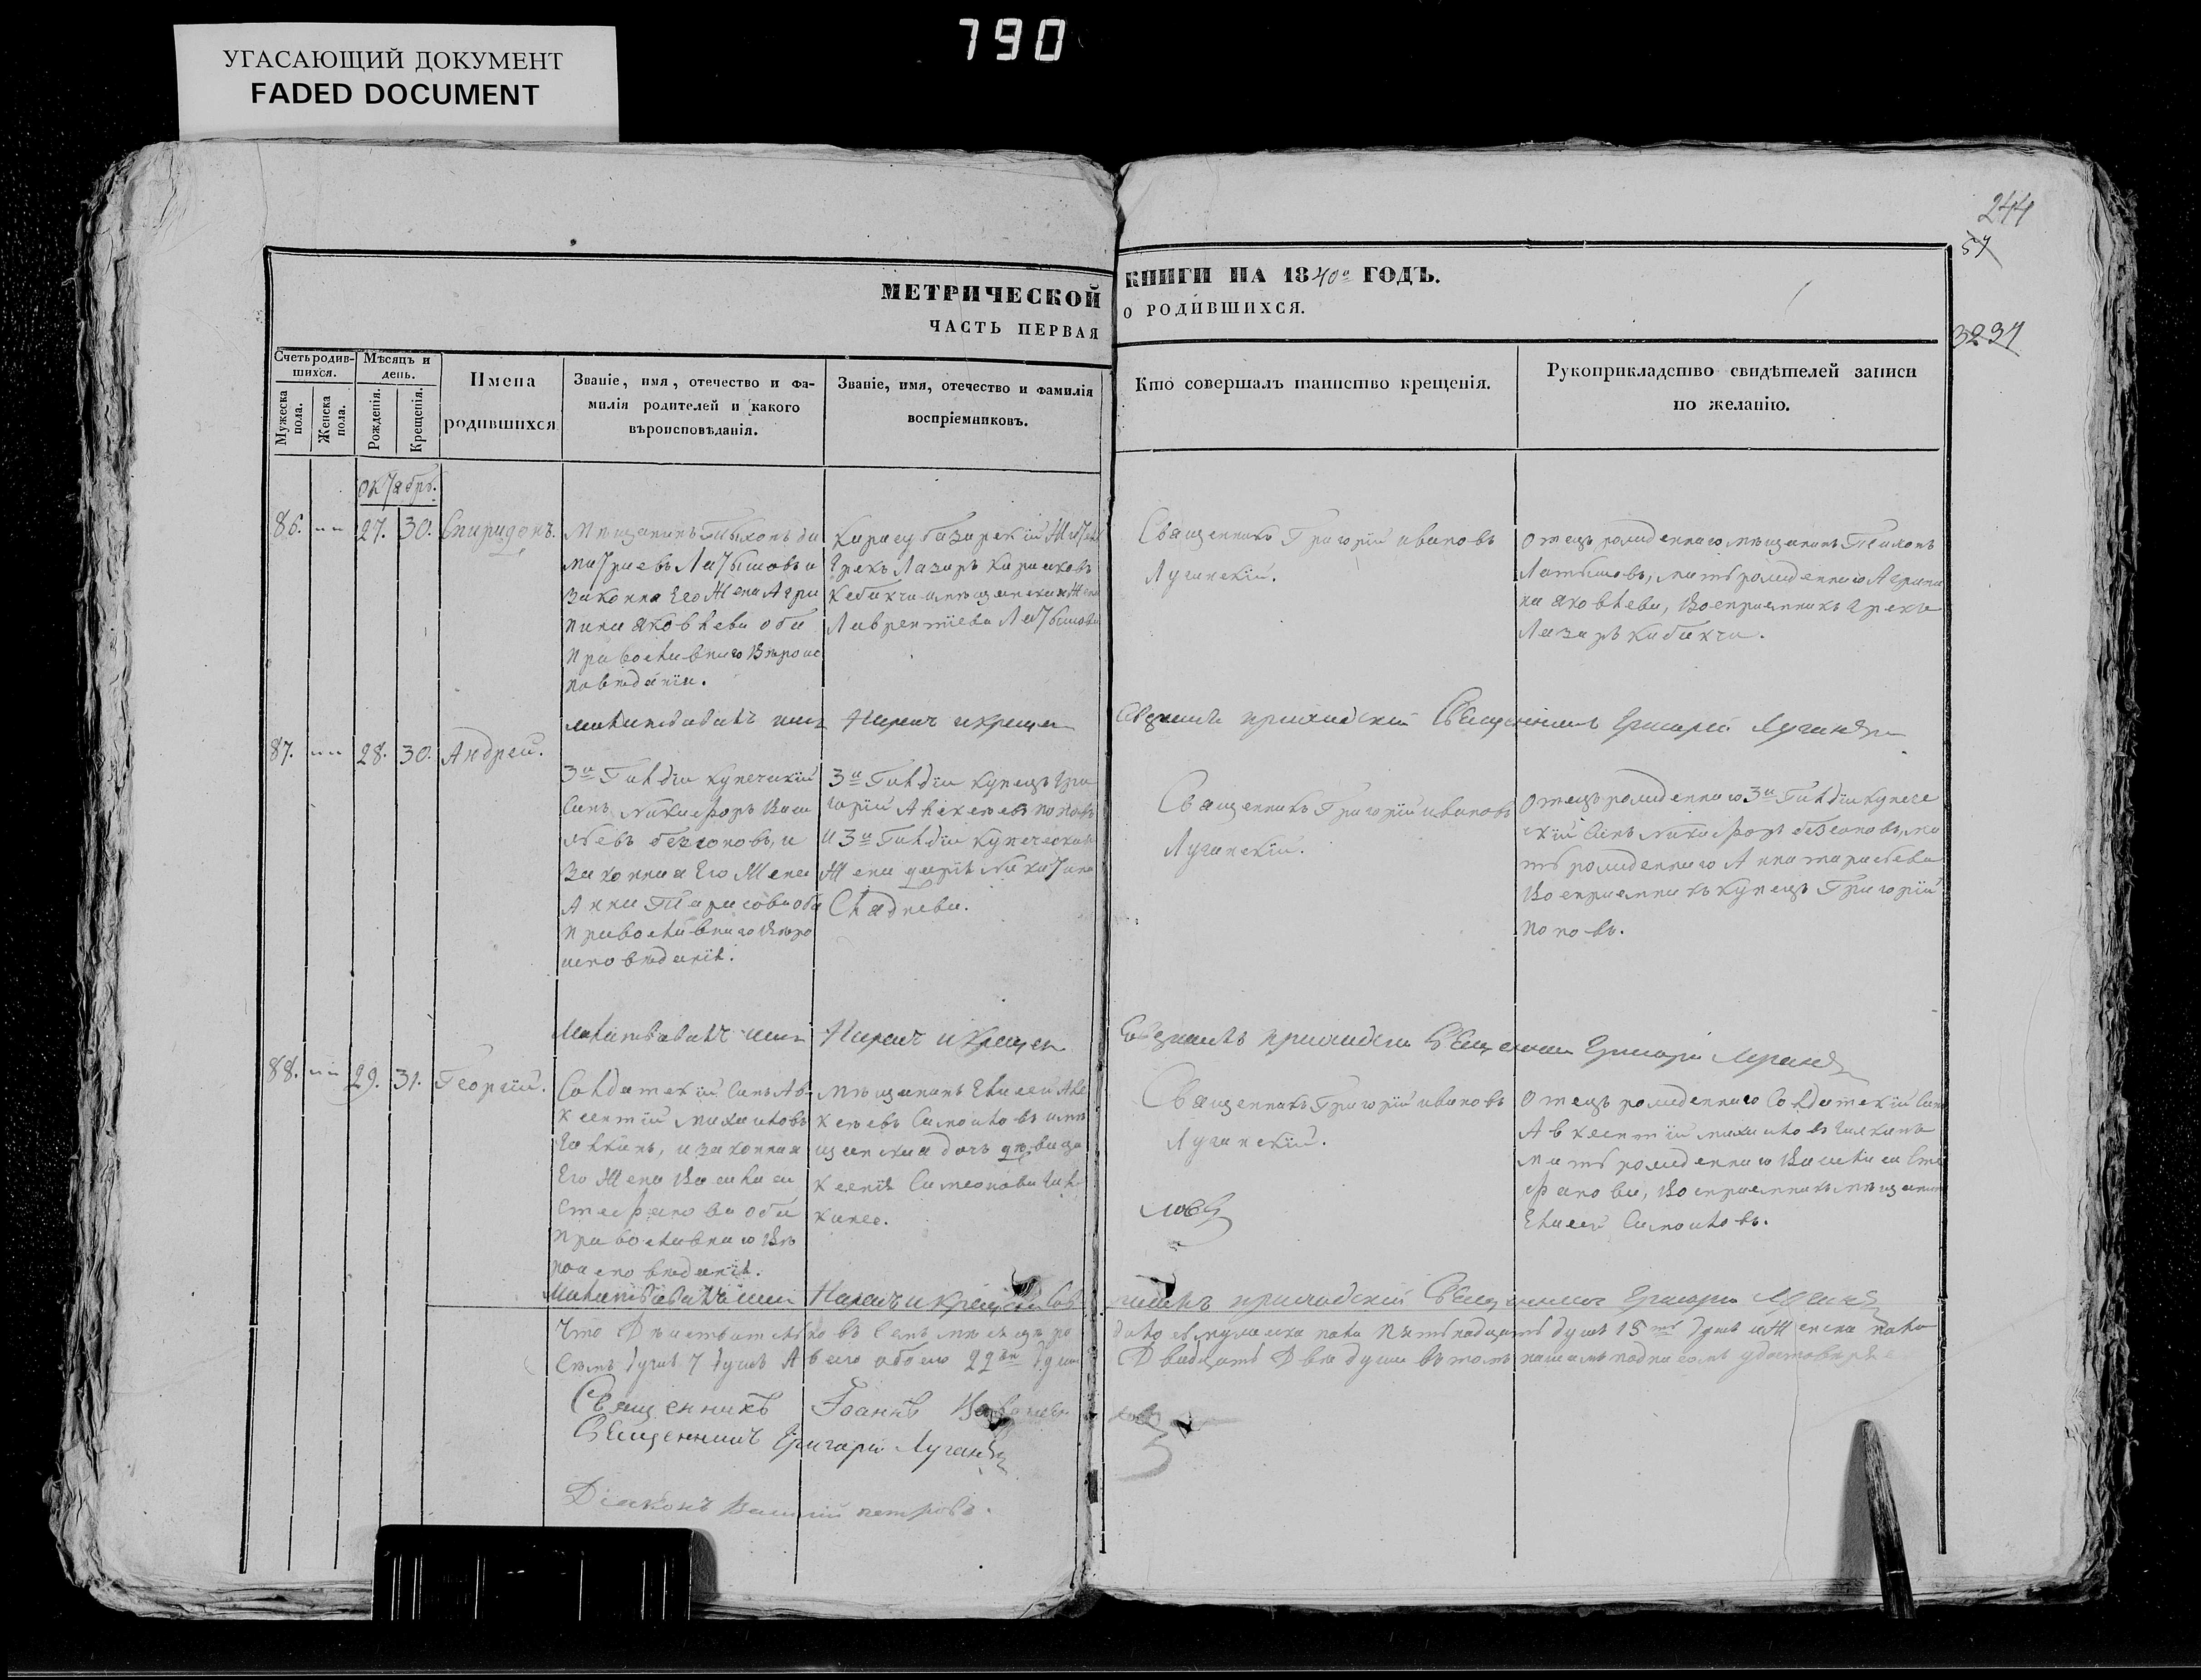 790
УГАСАЮЩИЙ ДОКУМЕНТ
FADED DOCUMENT
244
57
3237
МЕТРИЧЕСКОЙ
КНИГИ НА 1840а ГОДЪ.
ЧАСТЬ ПЕРВАЯ
О РОДИВШИХСЯ.
Счетъ родив-
шихся.
Мужеска
пола.
Женска
пола.
Мѣсяцъ и
день.
Рожденія.
Крещенія.
Имена
родившихся
Званіе, имя, отечество и фа-
милія родителей и какого
вѣроисповѣданія.
Званіе, имя, отечество и фамилія
воспріемниковъ.
Кто совершалъ таинство крещенія.
Рукоприкладство свидѣтелей записи
по желанію.
Октябрь.
86.
27.
30.
Спиридонъ.
Мѣщанинъ Тихонъ Ди
митріевъ Латышовъ и
законна Его Жена Агри
пина Яковлева оба
православнаго Вѣроис
повѣданіи.
Карасубазарскій Жител
Грекъ Лазарь
мѣщанская Жена
Лаврентіева Латышова
Священникъ Григорій ивановъ
Лучинскій.
Отецъ рожденнаго мѣщанинъ Тихонъ
Латышовъ, мать рожденнаго Агрипи
на Яковлева, Воспріемникъ грекъ
Лазарь
имя Нарекъ и крещен
приходскій Священникъ Григорій
87.
28.
30.
Андрей.
3й Гилдіи купеческій
Синъ Никифоръ Васи
льевъ безсоновъ, и
Законная Его Жена
Анна Тарасова оба
православнаго Вѣро
исповѣданія.
3й Гилдіи купецъ Гри
горій Алексеевъ поповъ
и 3й Гилдіи купеческая
Жена Никитина
Сляднева.
Священникъ Григорій ивановъ
Лучинскій.
Отецъ рожденнаго 3й Гилдіи купече
скій Синъ Никифоръ безсоновъ, ма
ть рожденнаго Анна тарасьева
Воспріемникъ купецъ Григорій
поповъ.
имя Нарекъ и Крещен
приходскій Священникъ Григорій
88.
29.
31.
Георгій.
Солдатскій Синъ Ав-
ксентій михаиловъ
Галкинъ, и законная
Его Жена Василиса
Стефанова оба
православнаго Вѣ
роисповѣданія.
Мѣщанинъ Елисей Але
ксеевъ Самоиловъ и мѣ
щанская дочь дѣвица
Ксенія Симеонова Гал
кина.
Священникъ Григорій ивановъ
Лучинскій.
Отецъ рожденнаго Солдатскій Синъ
Авксентій михаиловъ Галкинъ
мать рожденнаго Василиса Сте
фанова, Воспріемникъ мѣщанин
Елисей Самоиловъ.
имя Нарекъ и Крещен
приходскій Священникъ Григорій
Что Дѣйствительно въ Семъ мѣсяцѣ ро
дилось мужеска пола пятьнадцать душъ 15ть душъ и Женска пола
Семь душъ 7 душъ А всего обоего 22ве души
Двадцать Две души въ томъ нашимъ подписомъ удостоверяе
Священникъ Іоаннъ
Священникъ Григорій
Діаконъ Василій петровъ.